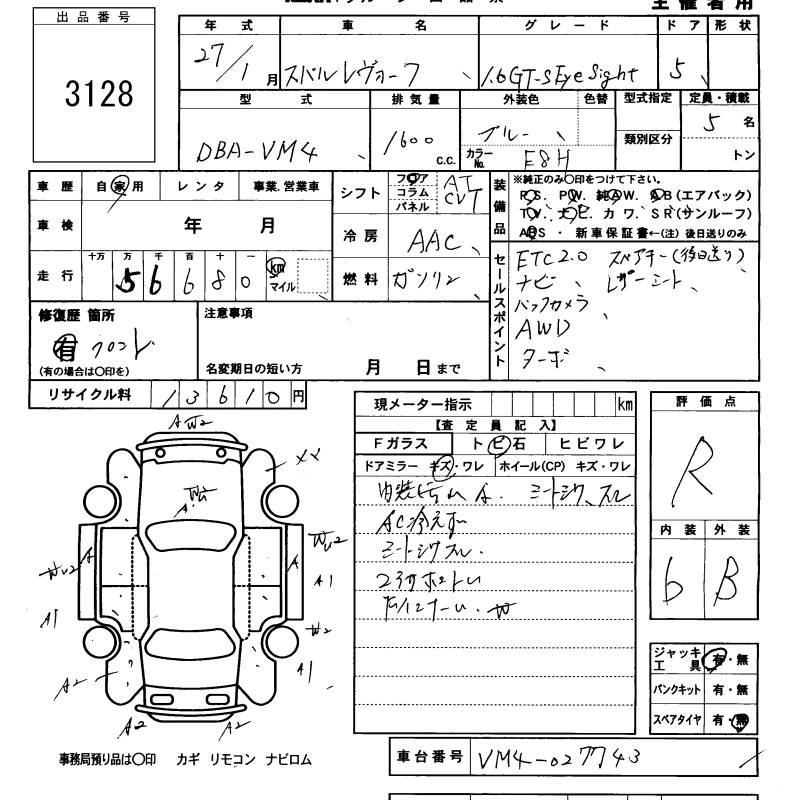 主催者用
出品番号
3128
年式 車名 グレード ドア 形状
27/1月 スバル レヴォーグ 1.6GT-S EyeSight 5
型式 排気量 外装色 色替 型式指定 定員・積載
DBA-VM4 1600 c.c. ブルー 5名
カラーNo. E8H 類別区分 トン
車歴 自家用 レンタ 事業.営業車
車検 年 月
走行 十万 万 千 百 十 一 km
5 6 6 8 0 マイル
シフト フロア コラム パネル AT CVT
冷房 AAC
燃料 ガソリン
装備品 ※純正のみ○印をつけて下さい。
P.S. P.W. 純A.W. A.B(エアバック)
T.V. ナビ カワ. S.R(サンルーフ)
ABS ・ 新車保証書←(注)後日送りのみ
セールスポイント
ETC2.0 スペアキー(後日送り)
ナビ レザーシート
バックカメラ
AWD
ターボ
修復歴 箇所
有 フロント
(有の場合は○印を)
注意事項
名変期日の短い方 月 日まで
リサイクル料 13610円
現メーター指示 km
【査定員記入】
Fガラス トビ石 ヒビワレ
ドアミラー キズ・ワレ ホイール(CP) キズ・ワレ
内装 A シートシワ、スレ
AC冷えず
シートシワスレ
評価点
R
内装 外装
6 B
A W2
A
A
W2
A1
A1
A
W2
A1
A2
A2
A2
ジャッキ工具 有・無
パンクキット 有・無
スペアタイヤ 有・無
事務局預り品は○印 カギ リモコン ナビロム
車台番号 VM4-027743